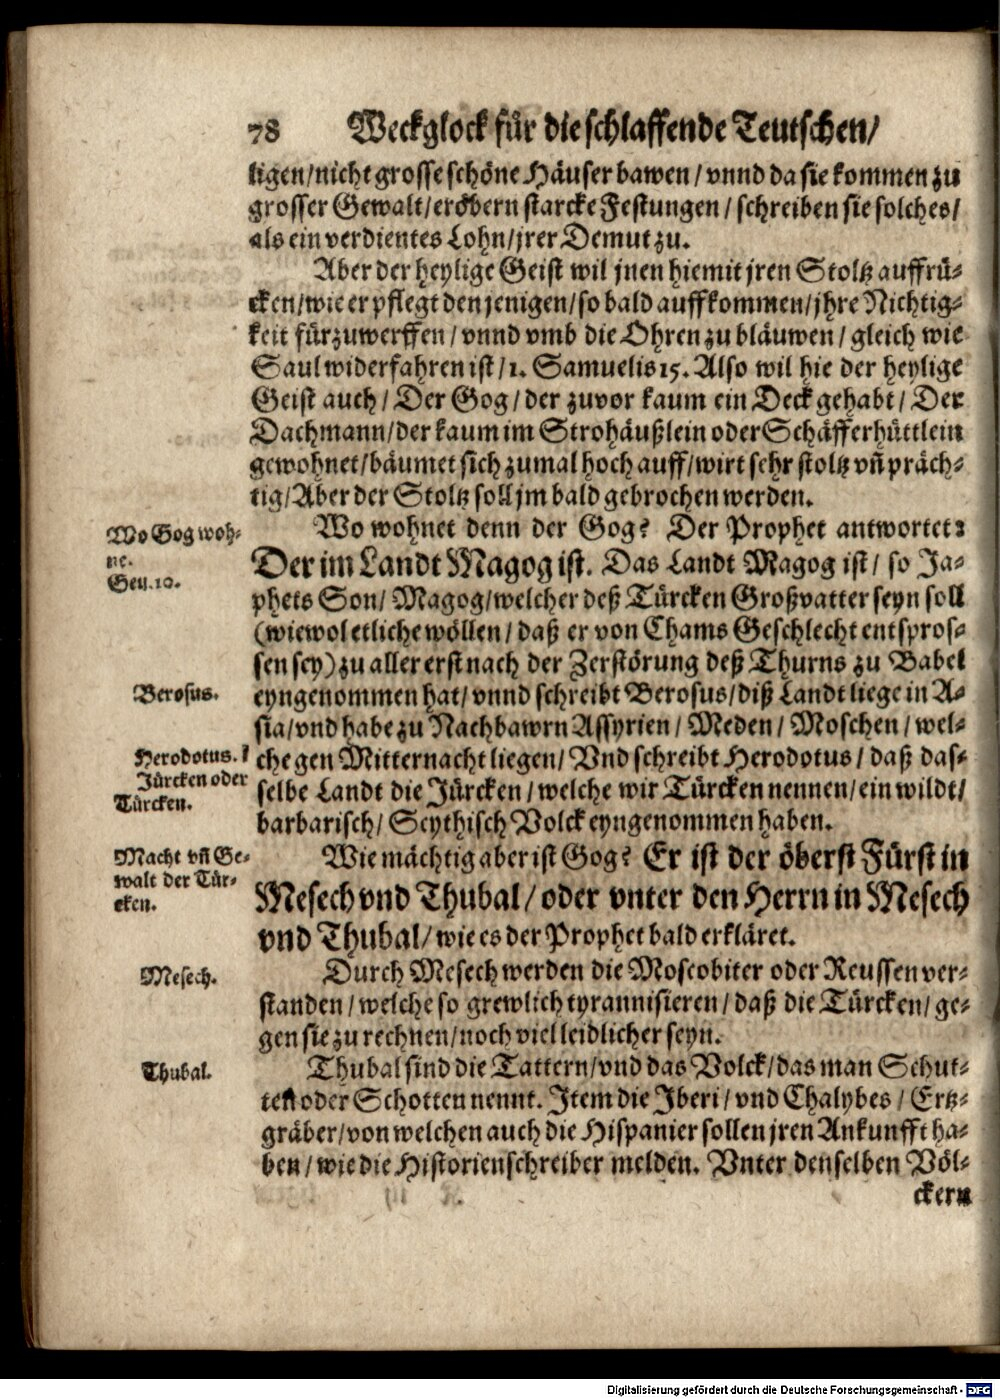 78 Weckglock für die schlaffende Teutschen/
ligen/ nicht grosse schöne Häuser bawen/ vnnd da sie kommen zu
grosser Gewalt/ eröbern starcke Festungen/ schreiben sie solches/
als ein verdientes Lohn/ jrer Demut zu.
Aber der heylige Geist wil jnen hiemit jren Stoltz auffrü-
cken/ wie er pflegt den jenigen/ so bald auffkommen/ jhre Nichtig-
keit fürzuwerffen/ vnnd vmb die Ohren zu bläuwen/ gleich wie
Saul widerfahren ist/ 1. Samuelis 15. Also wil hie der heylige
Geist auch/ Der Gog/ der zuvor kaum ein Deck gehabt/ Der
Dachmann/ der kaum im Strohäußlein oder Schäfferhüttlein
gewohnet/ bäumet sich zumal hoch auff/ wirt sehr stoltz vñ präch-
tig/ Aber der Stoltz soll jm bald gebrochen werden.
Wo Gog woh-
ne.
Gen. 10.
Wo wohnet denn der Gog? Der Prophet antwortet:
Der im Landt Magog ist. Das Landt Magog ist/ so Ja-
phets Son/ Magog/ welcher deß Türcken Großvatter seyn soll
(wiewol etliche wöllen/ daß er von Chams Geschlecht entspros-
sen sey) zu aller erst nach der Zerstörung deß Thurns zu Babel
Berosus.
eyngenommen hat/ vnnd schreibt Berosus/ diß Landt liege in A-
sia/ vnd habe zu Nachbawrn Assyrien/ Meden/ Moschen/ wel-
Herodotus.
Jürcken oder
Türcken.
che gen Mitternacht liegen/ Vnd schreibt Herodotus/ daß das-
selbe Landt die Jürcken/ welche wir Türcken nennen/ ein wildt/
barbarisch/ Scythisch Volck eyngenommen haben.
Macht vñ Ge-
walt der Tür-
cken.
Wie mächtig aber ist Gog? Er ist der öberst Fürst in
Mesech vnd Thubal/ oder vnter den Herrn in Mesech
vnd Thubal/ wie es der Prophet bald erkläret.
Mesech.
Durch Mesech werden die Moscobiter oder Reussen ver-
standen/ welche so grewlich tyrannisieren/ daß die Türcken/ ge-
gen sie zu rechnen/ noch viel leidlicher seyn.
Thubal.
Thubal sind die Tattern/ vnd das Volck/ das man Schut-
ten oder Schotten nennt. Item die Iberi/ vnd Chalybes/ Ertz-
gräber/ von welchen auch die Hispanier sollen jren Ankunfft ha-
ben/ wie die Historienschreiber melden. Vnter denselben Völ-
ckern
Digitalisierung gefördert durch die Deutsche Forschungsgemeinschaft - DFG